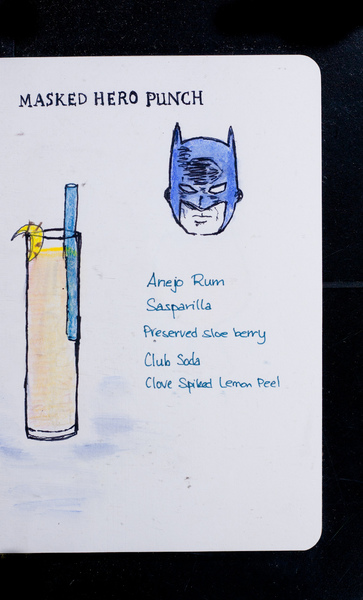 MASKED HERO PUNCH
Anejo Rum
Sasparilla
Preserved sloe berry
Club Soda
Clove Spiked Lemon Peel